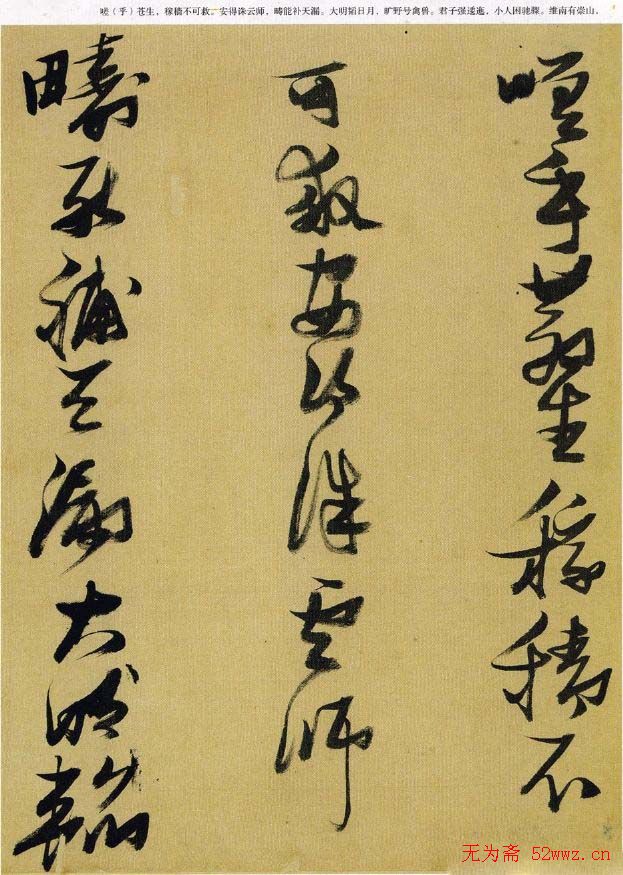 嗟(乎)苍生,稼穑不可救。安得诛云师,畴能补天漏。大明韬日月,旷野号禽兽。君子强逶迤,小人困驰骤。维南有崇山,
嗟乎世苍生稼穑不
可救安得诛云师
畴能补天漏大明韬
无为斋 52wwz.cn